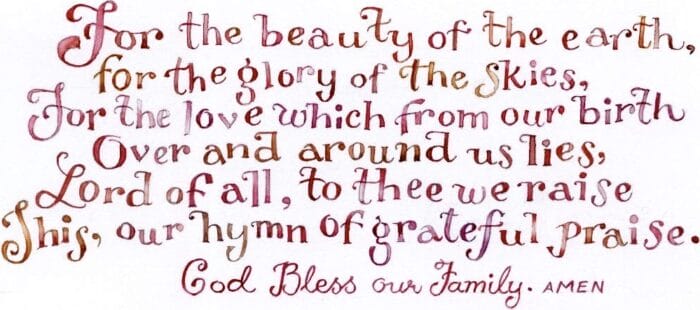 For the beauty of the earth,
for the glory of the skies,
For the love which from our birth
Over and around us lies,
Lord of all, to thee we raise
This, our hymn of grateful praise.
God Bless our Family. AMEN